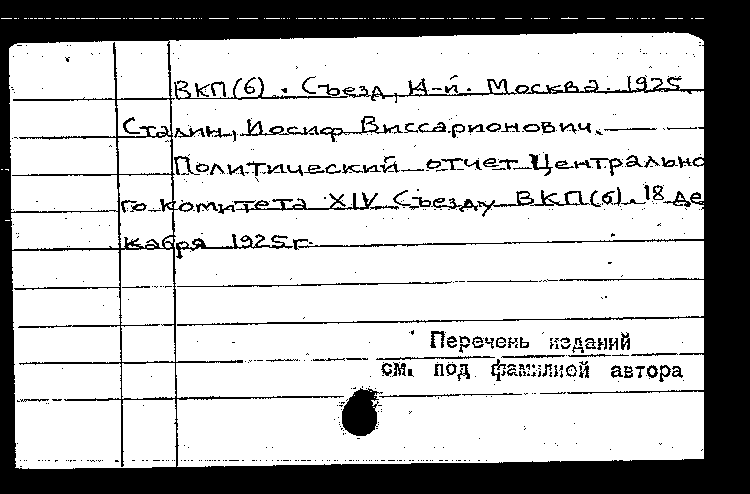 ВКП(б). Съезд, 14-й. Москва. 1925.
Сталин, Иосиф Виссарионович.
Политический отчет Центрально
го комитета XIV Съезду ВКП(б). 18 де
кабря 1925 г.
Перечень изданий
см. под фамилией автора